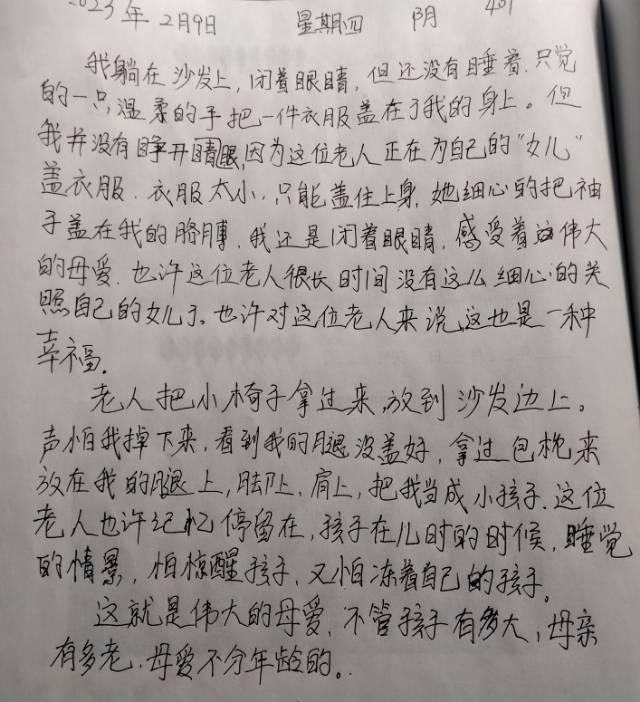 2023年2月9日 星期四 阴 401
我躺在沙发上，闭着眼睛，但还没有睡着.只觉
的一只，温柔的手把一件衣服盖在了我的身上。但
我并没有睁开睛眼，因为这位老人正在为自己的“女儿”
盖衣服.衣服太小.只能盖住上身，她细心的把袖
子盖在我的胳膊，我还是闭着眼睛，感受着这伟大
的母爱.也许这位老人很长时间没有这么细心的关
照自己的女儿了.也许对这位老人来说，这也是一种
幸福.
老人把小椅子拿过来，放到沙发边上。
声怕我掉下来，看到我的腿没盖好，拿过包枕来
放在我的腿上，脚上，肩上，把我当成小孩子.这位
老人也许记忆停留在，孩子在儿时的时候，睡觉
的情景，怕惊醒孩子，又怕冻着自己的孩子。
这就是伟大的母爱，不管孩子有多大，母亲
有多老.母爱不分年龄的。.